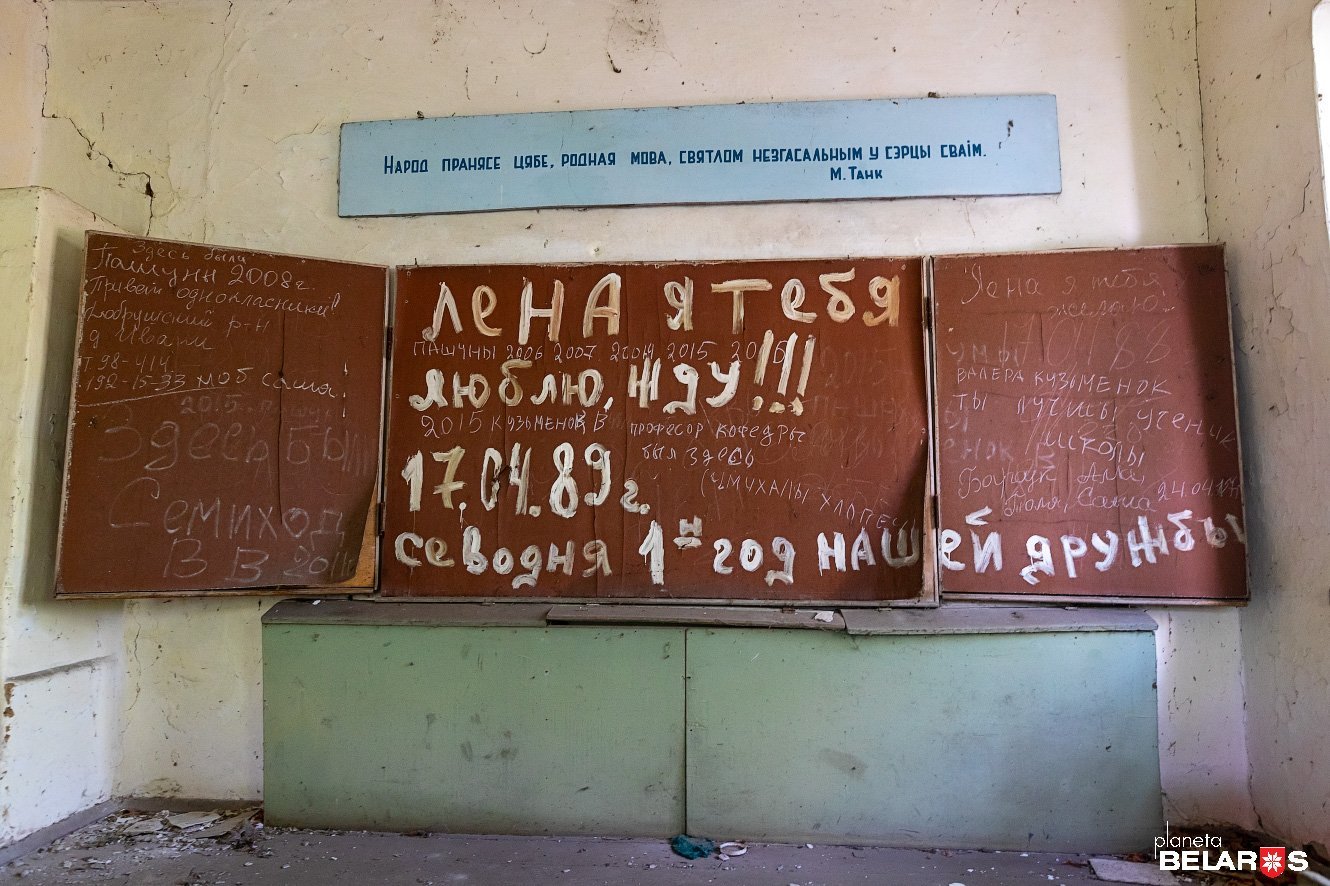 Народ пранясе цябе, родная мова, святлом незгасальным у сэрцы сваім.
М. Танк
Здесь были
Пашуны 2008г.
Привет однокласники!
Добрушский р-н
д Иваки
т 98-414
192-15-33 моб саша
2015.
Здесь бы
Семиход
В В 20
Лена я тебя
ПАШУНЫ 2006 2007 2014 2015 2016
люблю, жду!!!
2015 КУЗЬМЕНОК В ПРОФЕСОР КОФЕДРЫ
БЫЛ ЗДЕСЬ
17.04.89г.
севодня 1й год нашей дружбы
Лена я тебя
ВАЛЕРА КУЗЬМЕНОК
ТЫ ЛУЧШЫЙ УЧЕНИК
ШКОЛЫ
24.04
planeta
BELARUS